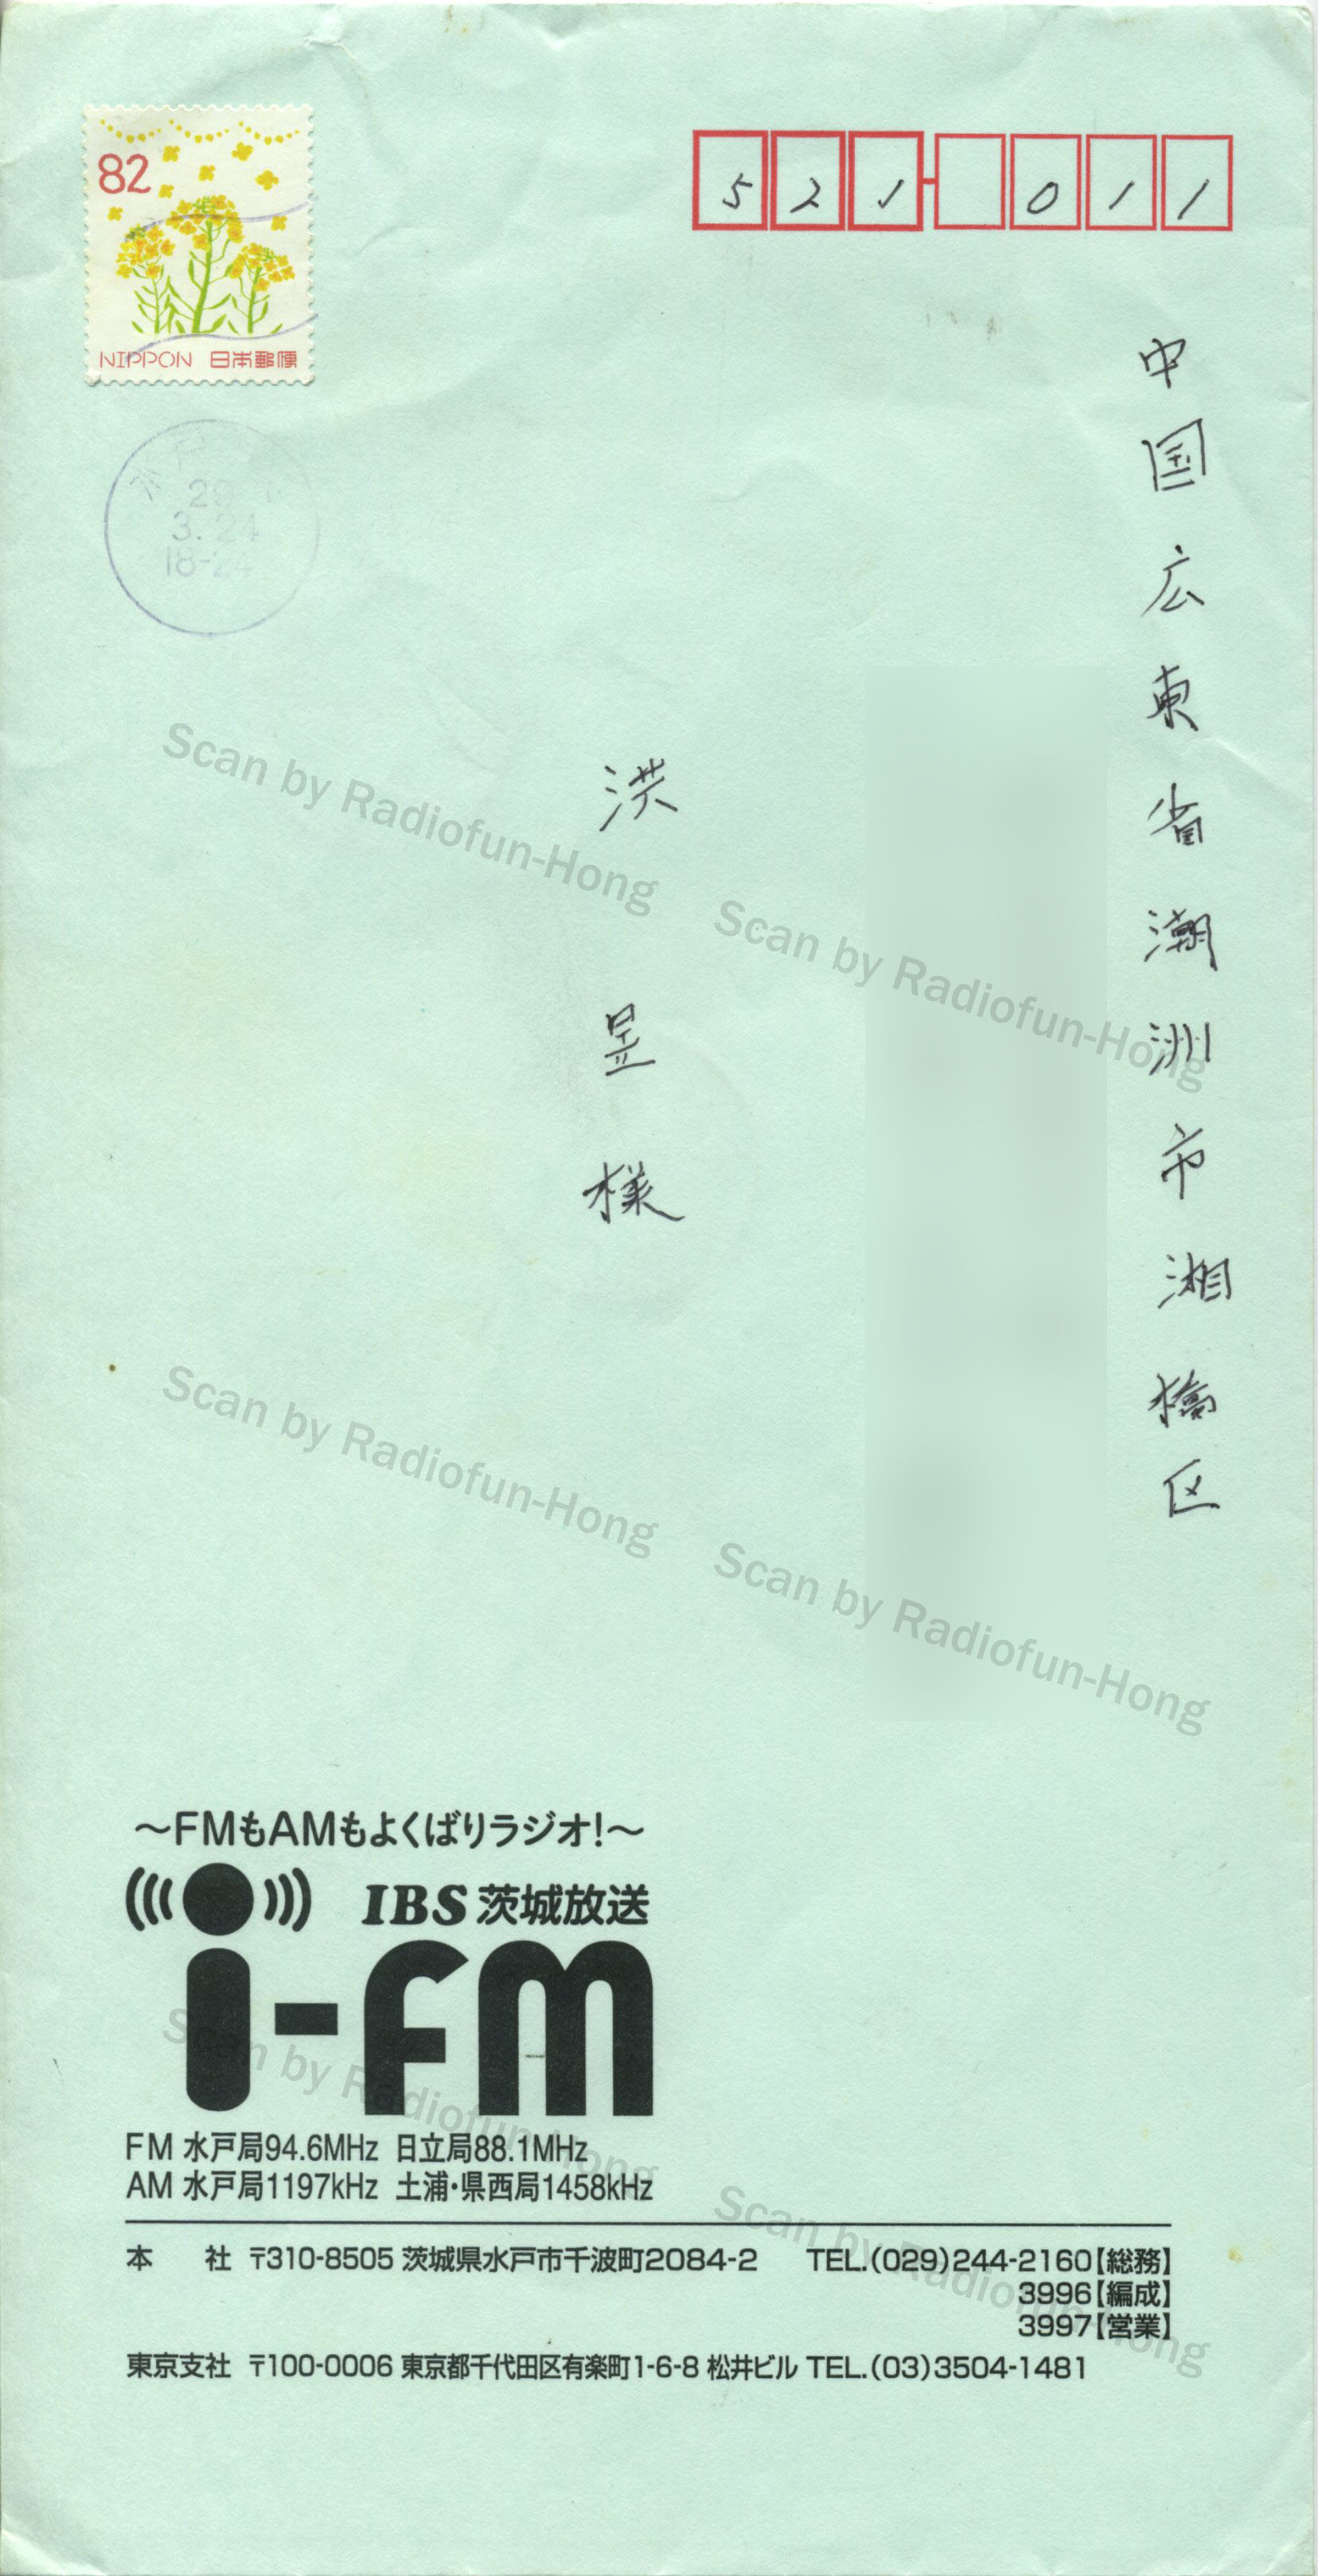 82
NIPPON 日本郵便
水戸
29
3.24
18-24
521-011
中国広東省潮洲市湘橋区
洪昱様
Scan by Radiofun-Hong
Scan by Radiofun-Hong
Scan by Radiofun-Hong
Scan by Radiofun-Hong
Scan by Radiofun-Hong
Scan by Radiofun-Hong
～FMもAMもよくばりラジオ!～
IBS茨城放送
i-FM
FM 水戸局94.6MHz 日立局88.1MHz
AM 水戸局1197kHz 土浦・県西局1458kHz
本 社 〒310-8505 茨城県水戸市千波町2084-2 TEL.(029)244-2160【総務】
3996【編成】
3997【営業】
東京支社 〒100-0006 東京都千代田区有楽町1-6-8 松井ビル TEL.(03)3504-1481